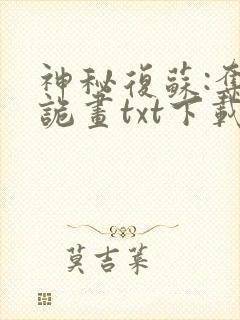 神秘復蘇:奪
詭畫txt下載
莫吉萊